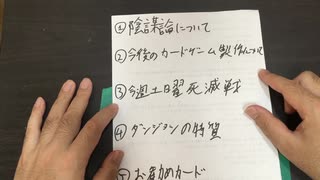 ①陰謀論について
②今後のカードゲーム製作について
③今週土日曜死滅戦
④ダンジョンの特質
⑤お勧めカード